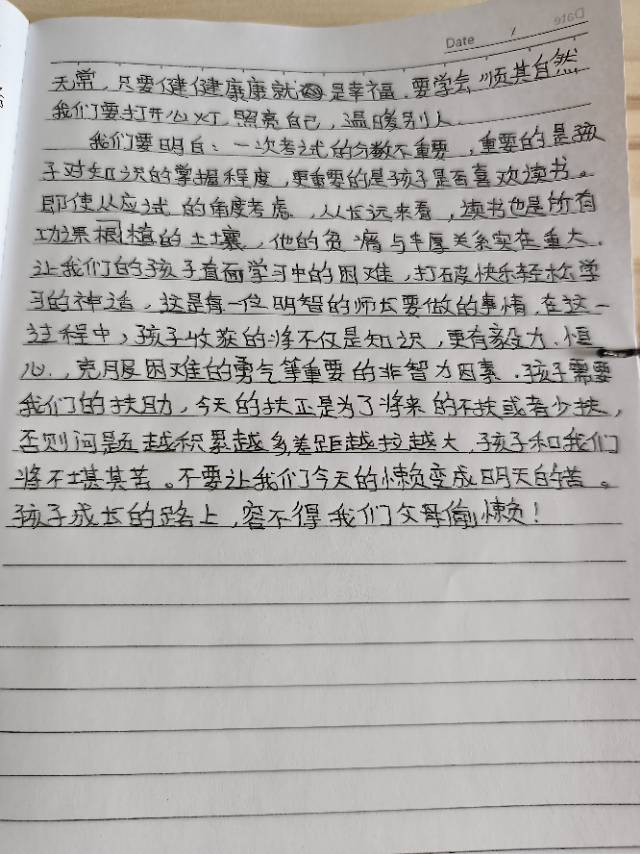 Date /
无常，只要健健康康就是幸福，要学会顺其自然
我们要打开心灯，照亮自己，温暖别人。
我们要明白：一次考试的分数不重要，重要的是孩
子对知识的掌握程度，更重要的是孩子是否喜欢读书。
即使从应试的角度考虑，从长远来看，读书也是所有
功课根植的土壤，他的贫瘠与丰厚关系实在重大。
让我们的孩子直面学习中的困难，打破快乐轻松学
习的神话，这是每一位明智的师长要做的事情，在这一
过程中，孩子收获的将不仅是知识，更有毅力、恒
心、克服困难的勇气等重要的非智力因素。孩子需要
我们的扶助，今天的扶正是为了将来的不扶或者少扶，
否则问题越积累越多，差距越拉越大，孩子和我们
将不堪其苦。不要让我们今天的懒负变成明天的苦。
孩子成长的路上，容不得我们父母偷懒负！